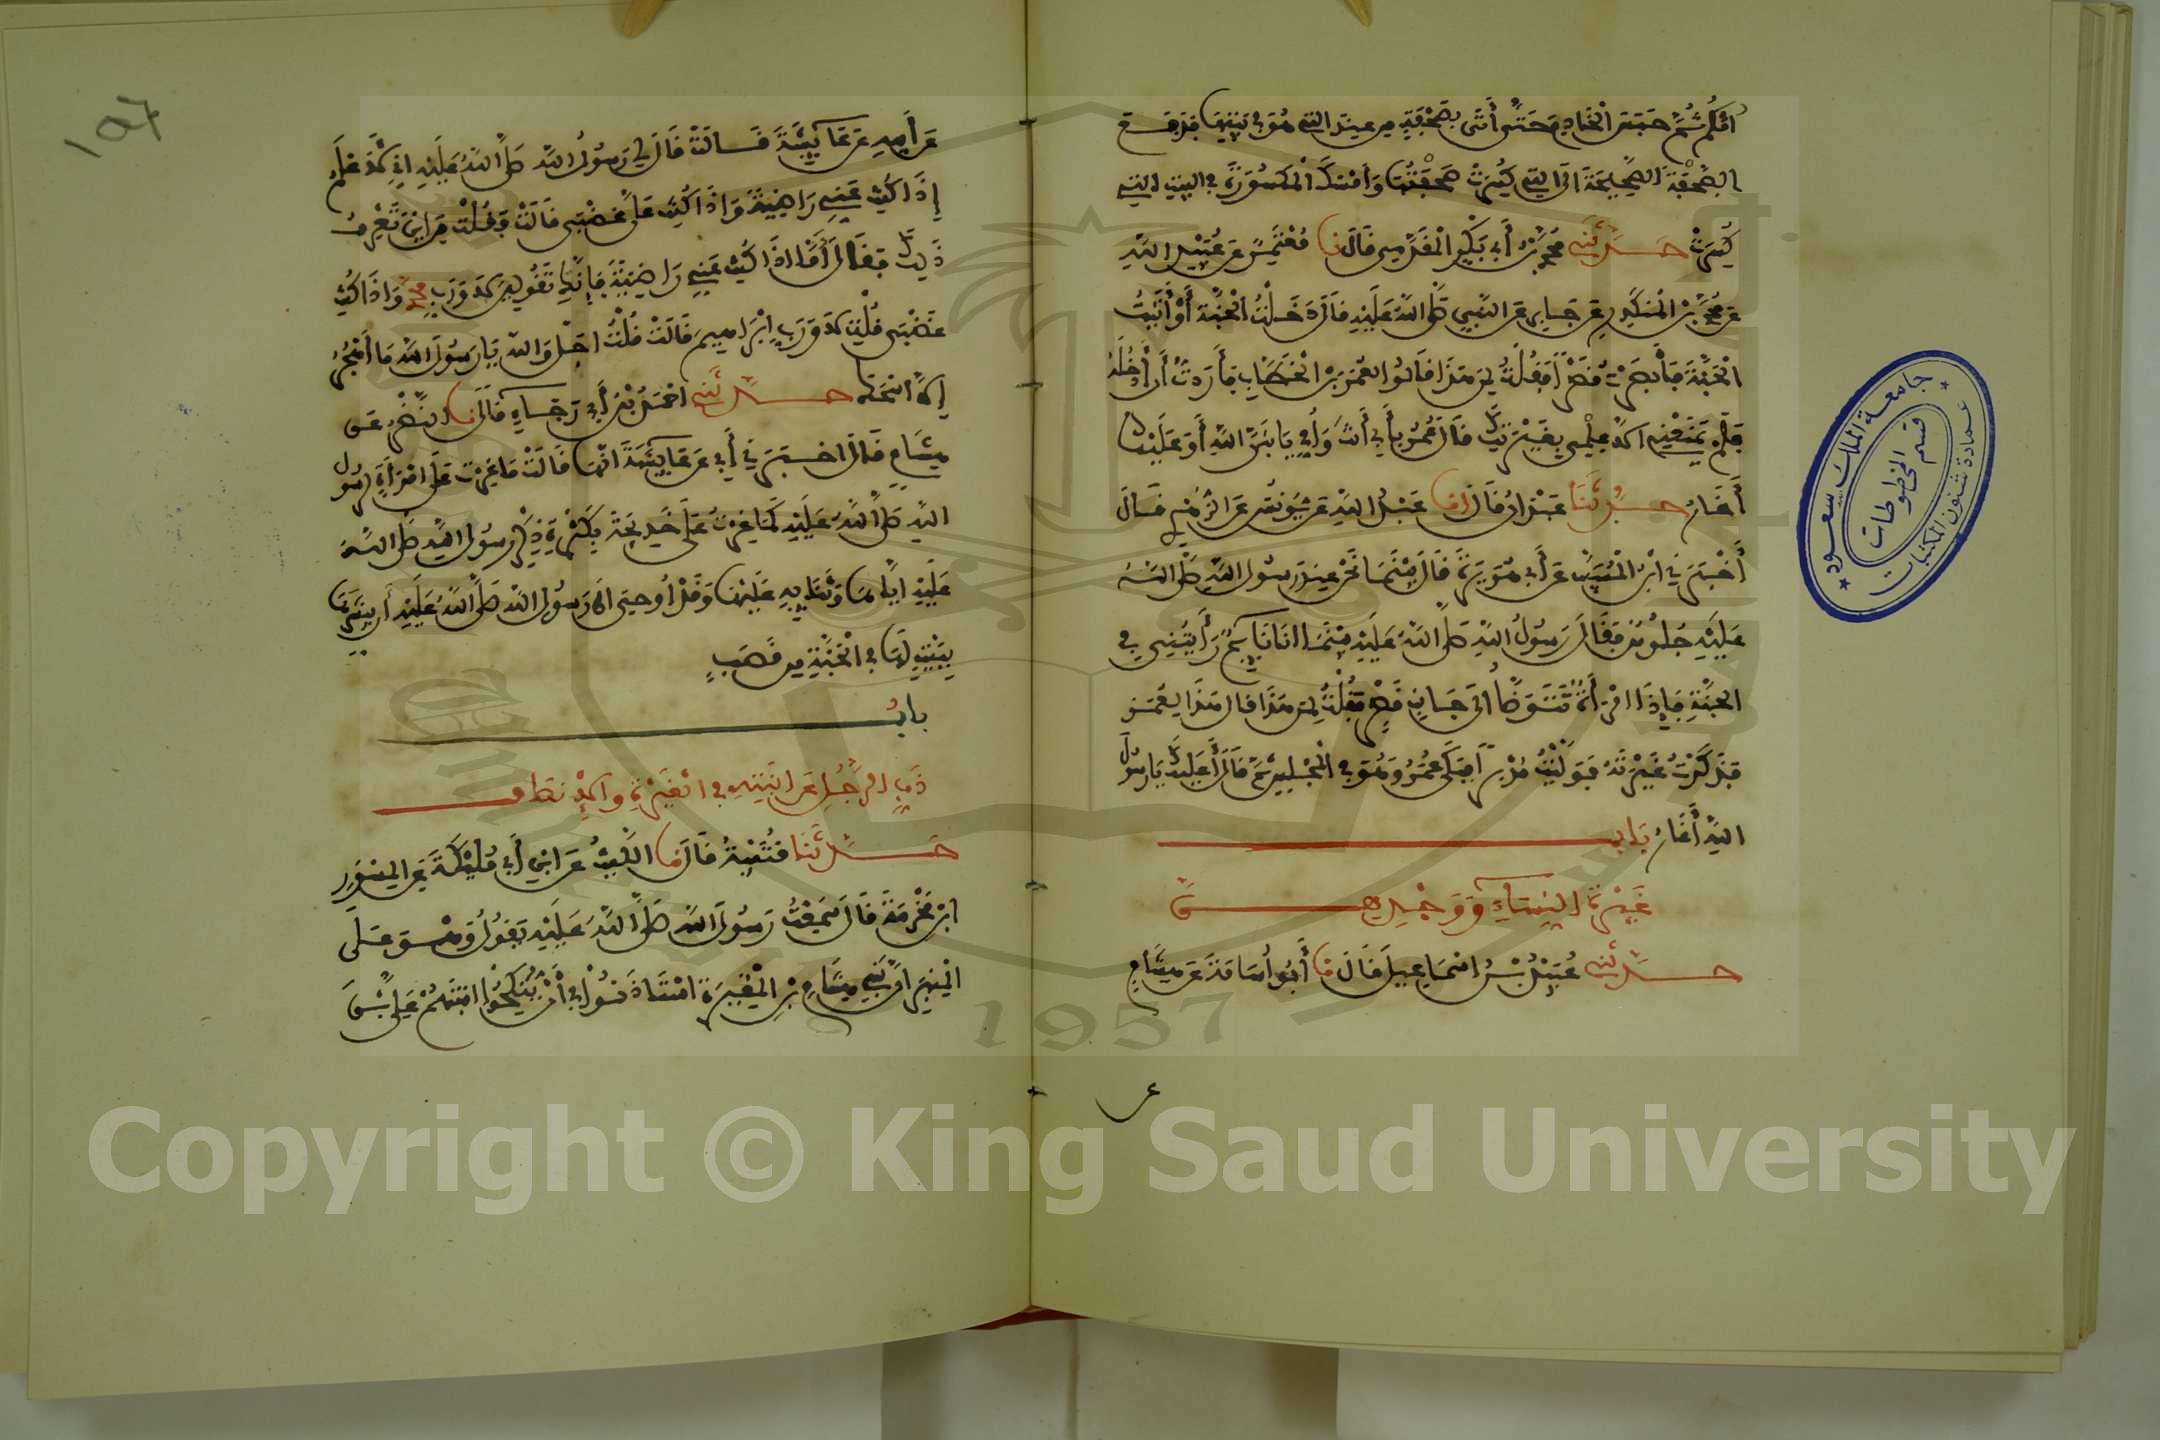 أمكم ثم حبس الخادم حتى أتى بصحفة من عند التي هو في بيتها فدفع
الصحفة الصحيحة الى التي كسرت صحفتها وامسك المكسورة في البيت التي
كسرت حدثني محمد بن أبي بكر المقدمي قال نا معتمر عن عبيد الله
عن محمد بن المنكدر عن جابر عن النبي صلى الله عليه قال دخلت الجنة أو أتيت
الجنة فأبصرت قصرا فقلت لمن هذا قالوا لعمر بن الخطاب فأردت أن أدخله
فلم يمنعني الا علمي بغيرتك قال عمر بأبي أنت وأمي يا نبي الله أو عليك
أغار حدثنا عبدان قال انا عبد الله عن يونس عن الزهري قال
أخبرني ابن المسيب عن أبي هريرة قال بينما نحن عند رسول الله صلى الله
عليه جلوس فقال رسول الله صلى الله عليه بينما انا نايم رأيتني في
الجنة فإذا امرأة تتوضأ الى جانب قصر فقلت لمن هذا قال هذا لعمر
فذكرت غيرته فوليت مدبرا فبكى عمر وهو في المجلس ثم قال أعليك يا رسول
الله أغار باب
غيرة النساء ووجدهن
حدثني عبيد بن اسماعيل قال نا أبو أسامة عن هشام
عن
١٥٦
عن أبيه عن عايشة قالت قال لي رسول الله صلى الله عليه اني لأعلم
إذا كنت عني راضية وإذا كنت علي غضبى قالت فقلت من اين تعرف
ذلك فقال أما اذا كنت عني راضية فإنك تقولين لا ورب محمد وإذا كنت
غضبى قلت لا ورب ابراهيم قالت قلت اجل والله يا رسول الله ما أهجر
إلا اسمك حدثني احمد بن أبي رجاء قال نا النضر عن
هشام قال اخبرني أبي عن عايشة انها قالت ما غرت على امرأة لرسول
الله صلى الله عليه كما غرت على خديجة بكثرة ذكر رسول الله صلى الله
عليه إياها وثنايه عليها وقد أوحي الى رسول الله صلى الله عليه أن يبشرها
ببيت لها في الجنة من قصب
باب
ذب الرجل عن ابنته في الغيرة والإنصاف
حدثنا قتيبة قال نا الليث عن ابن أبي مليكة عن المسور
ابن مخرمة قال سمعت رسول الله صلى الله عليه يقول وهو على
المنبر ان بني هشام بن المغيرة استأذنوا في أن ينكحوا ابنتهم علي بن
جامعة الملك سعود
قسم المخطوطات
عمادة شئون المكتبات
1957
Copyright © King Saud University